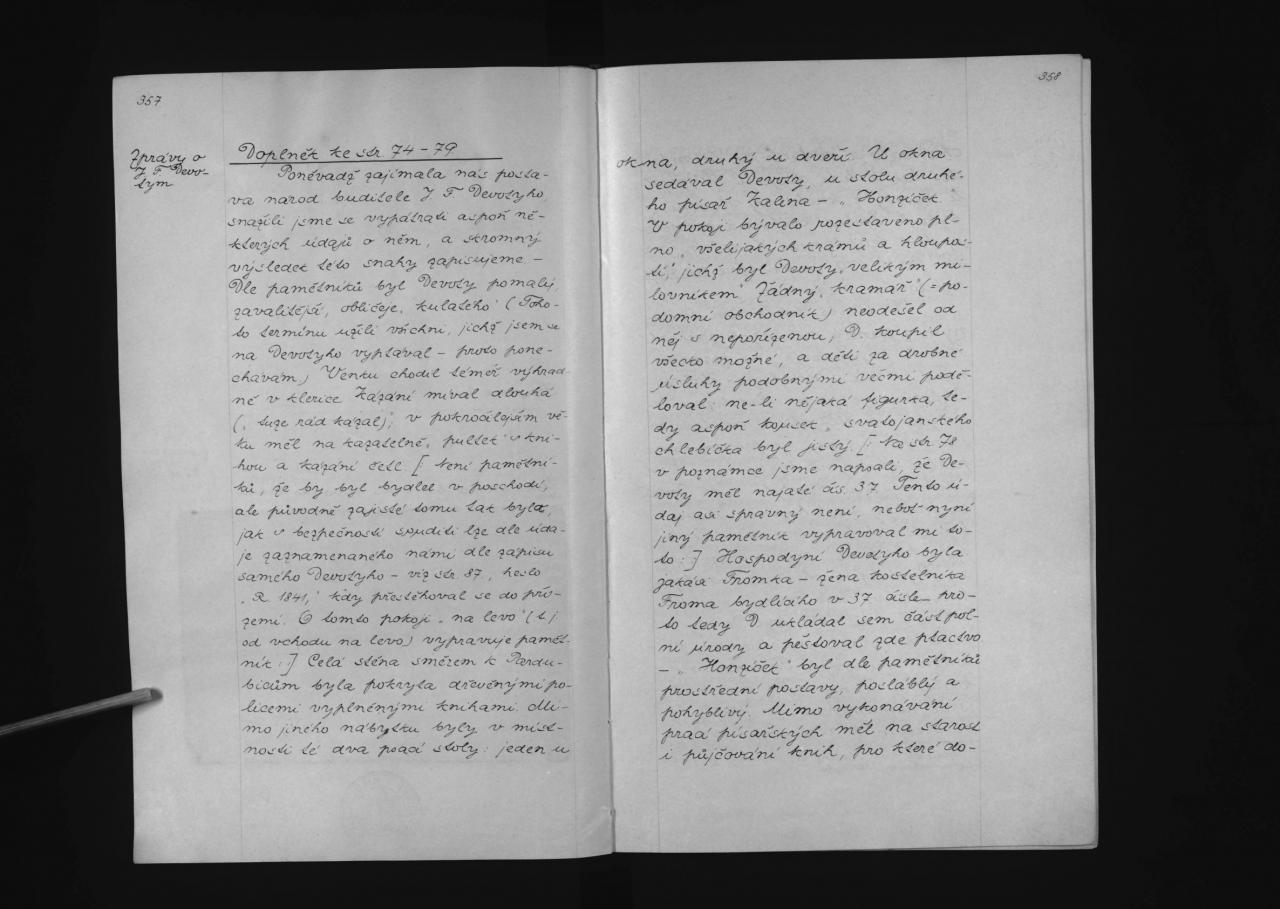 357
Zprávy o
J. F. Devo-
tym
Doplněk ke str. 74-79
Poněvadž zajímala nás posta-
va národ. buditele J. F. Devotyho,
snažili jsme se vypátrati aspoň ně-
kterých údajů o něm, a skromný
výsledek této snahy zapisujeme. –
Dle pamětníků byl Devoty pomalý,
zavalitější, obličeje „kulatého“ (Toho-
to termínu užili všichni, jichž jsem se
na Devotyho vyptával – proto pone-
chávám.) Venku chodil téměř výhrad-
ně v klerice. Kázání míval dlouhá
(„tuze rád kázal“); v pokročilejším vě-
ku měl na kazatelně „pultek“ s kni-
hou a kázání četl. [: Není pamětní-
ků, že by byl bydlel v poschodí,
ale původně zajisté tomu tak bylo,
jak s bezpečností souditi lze dle úda-
je zaznamenaného námi dle zápisu
samého Devotyho – viz str. 87., heslo
„R. 1841,“ kdy přestěhoval se do pří-
zemí. O tomto pokoji „na levo“ (t. j.
od vchodu na levo) vypravuje pamět-
ník :] Celá stěna směrem k Pardu-
bicům byla pokryta dřevěnými po-
licemi vyplněnými knihami. Mi-
mo jiného nábytku byly v míst-
nosti té dva psací stoly: jeden u
358
okna, druhý u dveří. U okna
sedával Devoty, u stolu druhé-
ho písař Kalina – „Honzíček“.
V pokoji bývalo rozestaveno pl-
no „všelijakých krámů a hloupos-
tí,“ jichž byl Devoty „velikým mi-
lovníkem“. Žádný „kramář“ (= po-
domní obchodník) neodešel od
něj s nepořízenou, D. koupil
všecko možné, a děti za drobné
úsluhy podobnými věcmi podě-
loval: ne-li nějaká figurka, te-
dy aspoň kousek „svatojanského
chlebíčka“ byl jistý. [: Na str. 78
v poznámce jsme napsali, že De-
voty měl najaté čís. 37. Tento ú-
daj asi správný není, neboť nyní
jiný pamětník vypravoval mi to-
to :] Hospodyní Devotyho byla
jakási Fromka – žena kostelníka
Froma bydlícího v 37. čísle – pro-
to tedy D. ukládal sem část pol-
ní úrody a pěstoval zde ptactvo.
– „Honzíček“ byl dle pamětníků
prostřední postavy, poslablý a
pohyblivý. Mimo vykonávání
prací písařských měl na starost
i půjčování knih, pro které do-